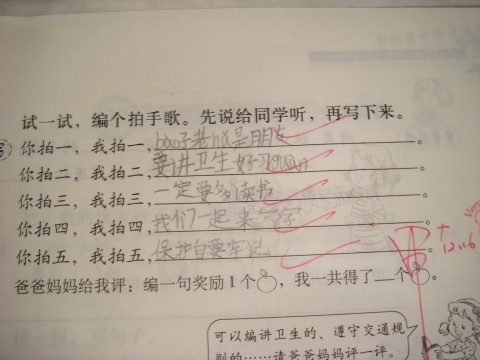 试一试，编个拍手歌。先说给同学听，再写下来。
你拍一，我拍一，bao子老hǔ是朋友。
你拍二，我拍二，要讲卫生好习guàn。
你拍三，我拍三，一定要多读书。
你拍四，我拍四，我们一起来写字。
你拍五，我拍五，保护自要牢记。
爸爸妈妈给我评：编一句奖励1个，我一共得了__个。
12.16
可以编讲卫生的、遵守交通规
则的……请爸爸妈妈评一评。